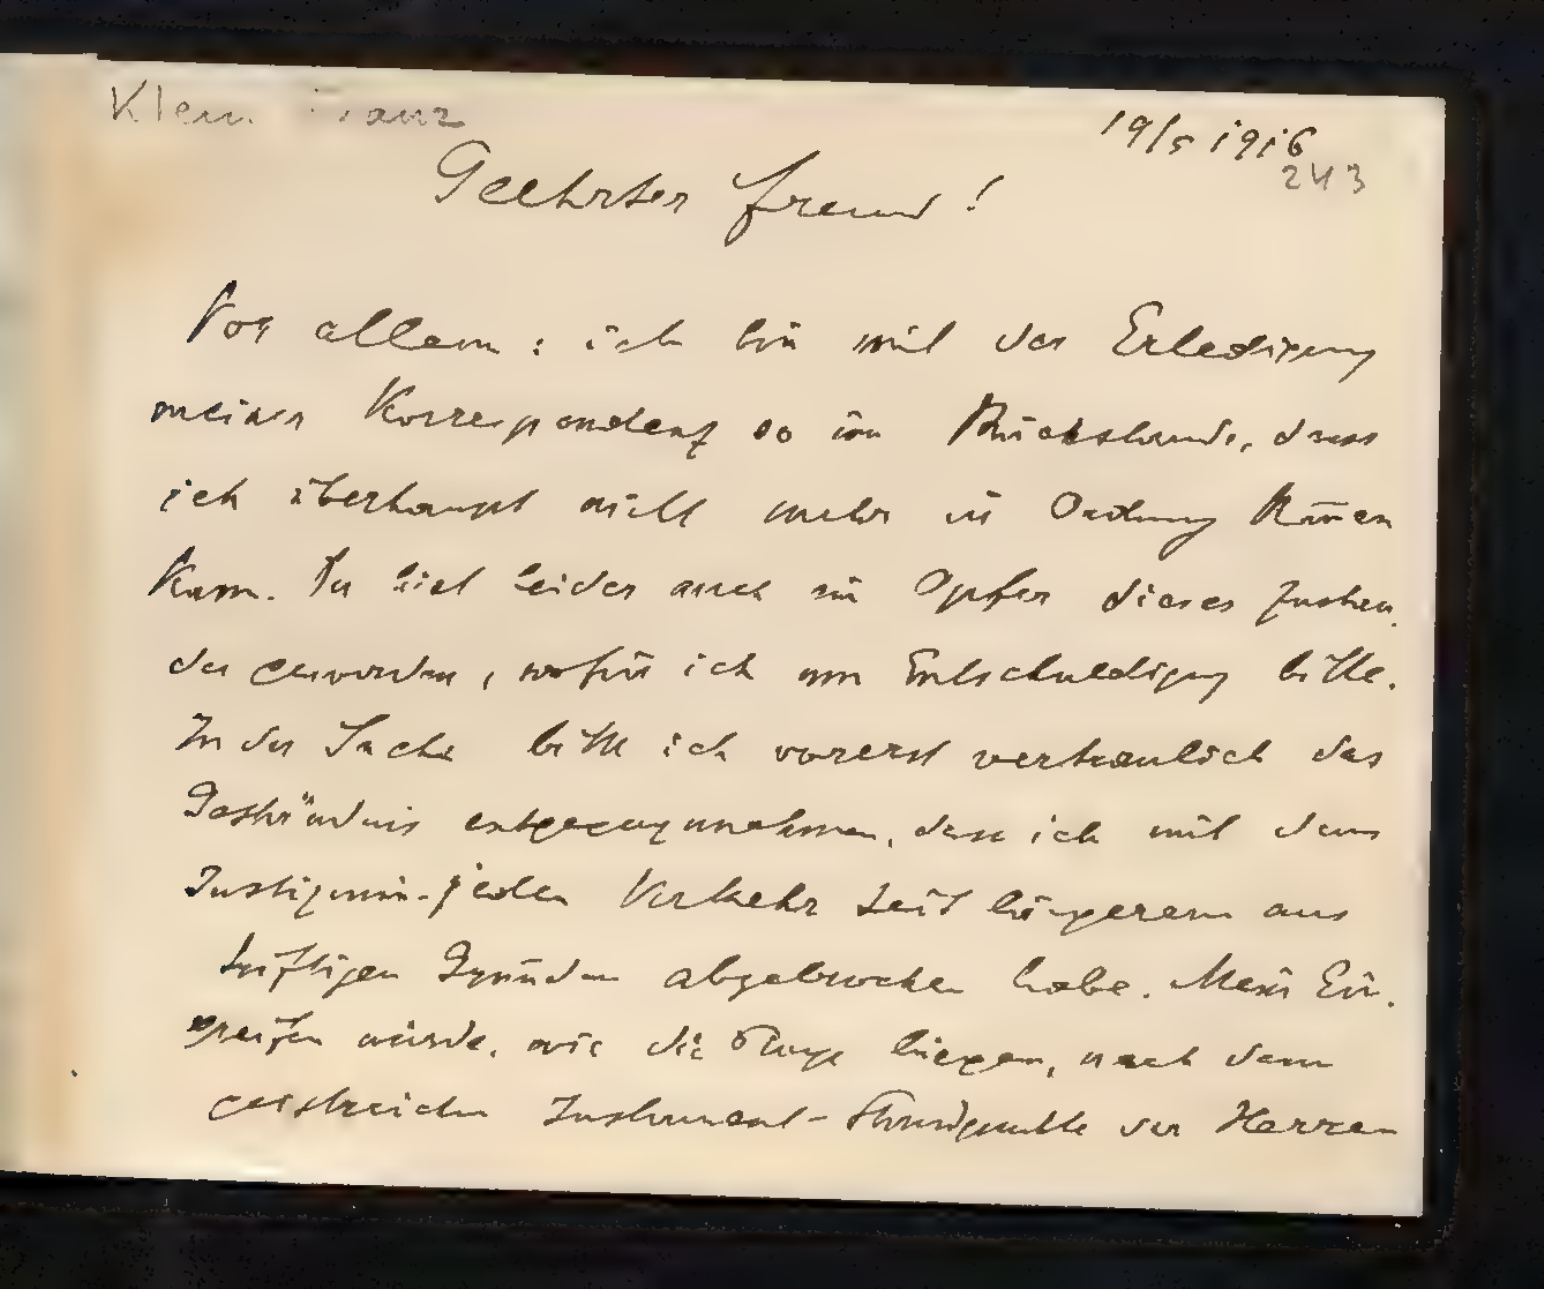 Klein Franz
19/5 1916
243
Geehrter Freund!
Vor allem: ich bin mit der Erledigung
meiner Korrespondenz so im Rückstande, dass
ich überhaupt nicht mehr in Ordnung kom̅en
kann. Du bist leider auch ein Opfer dieses Zustan-
des geworden, wofür ich um Entschuldigung bitte.
In der Sache bitte ich vorerst vertraulich das
Geständnis entgegenzunehmen, dass ich mit dem
Justizmin. jeden Verkehr seit längerem aus
triftigen Gründen abgebrochen habe. Mein Ein-
greifen würde, wie die Dinge liegen, nach dem
geistreichen Instrument-Standpunkte der Herren